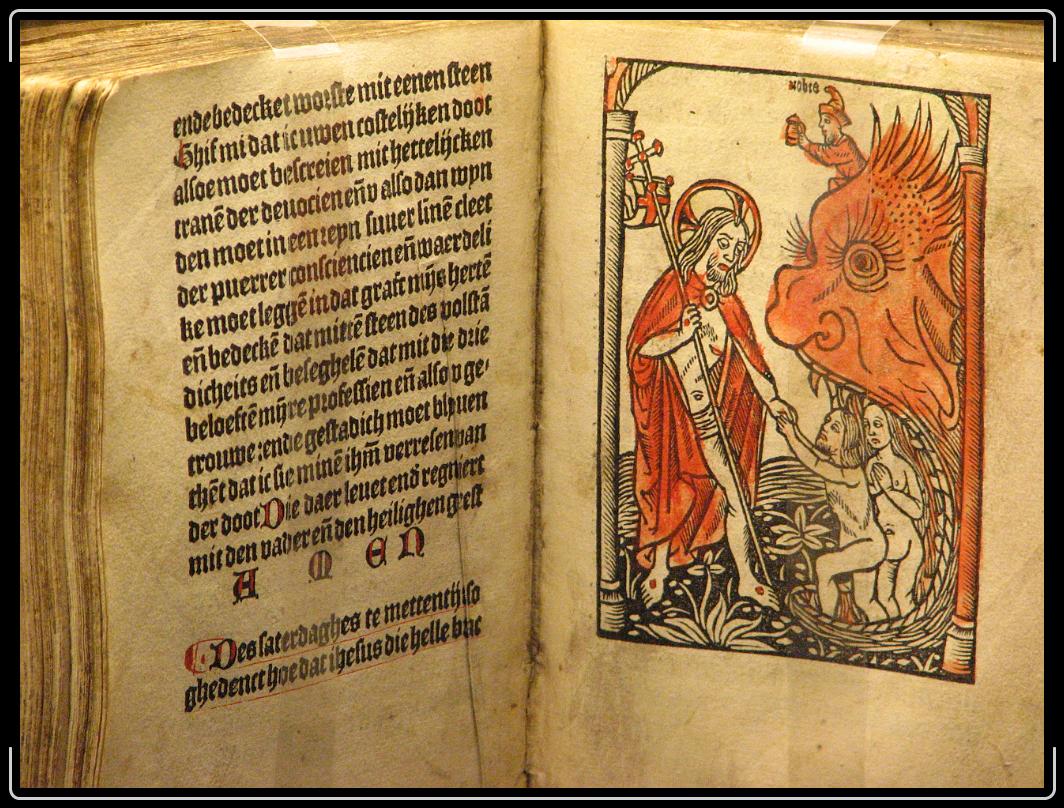 ende bedecket worste mit eenen steen
Ghif mi dat ic uwen costelijken doot
alsoe moet bescreien mit hertelijcken
tranē der deuocien eñ also dan wyn
den moet in een reyn suuer linē cleet
der puerrer consciencien eñ waerdeli
ke moet leggē in dat graft mijs hertē
eñ bedeckē dat mittē steen des volstā
dicheits eñ beseghelē dat mit die drie
beloeftē mijre professien eñ also v ge
trouwe: ende gestadich moet blyuen
thēt dat ic sie minē ihm̄ verresen van
der doot Die daer leuet end̄ regnert
mit den vader eñ den heilighen gest
A M E N
Des saterdaghes te mettentijt so
ghedenct hoe dat ihesus die helle brac